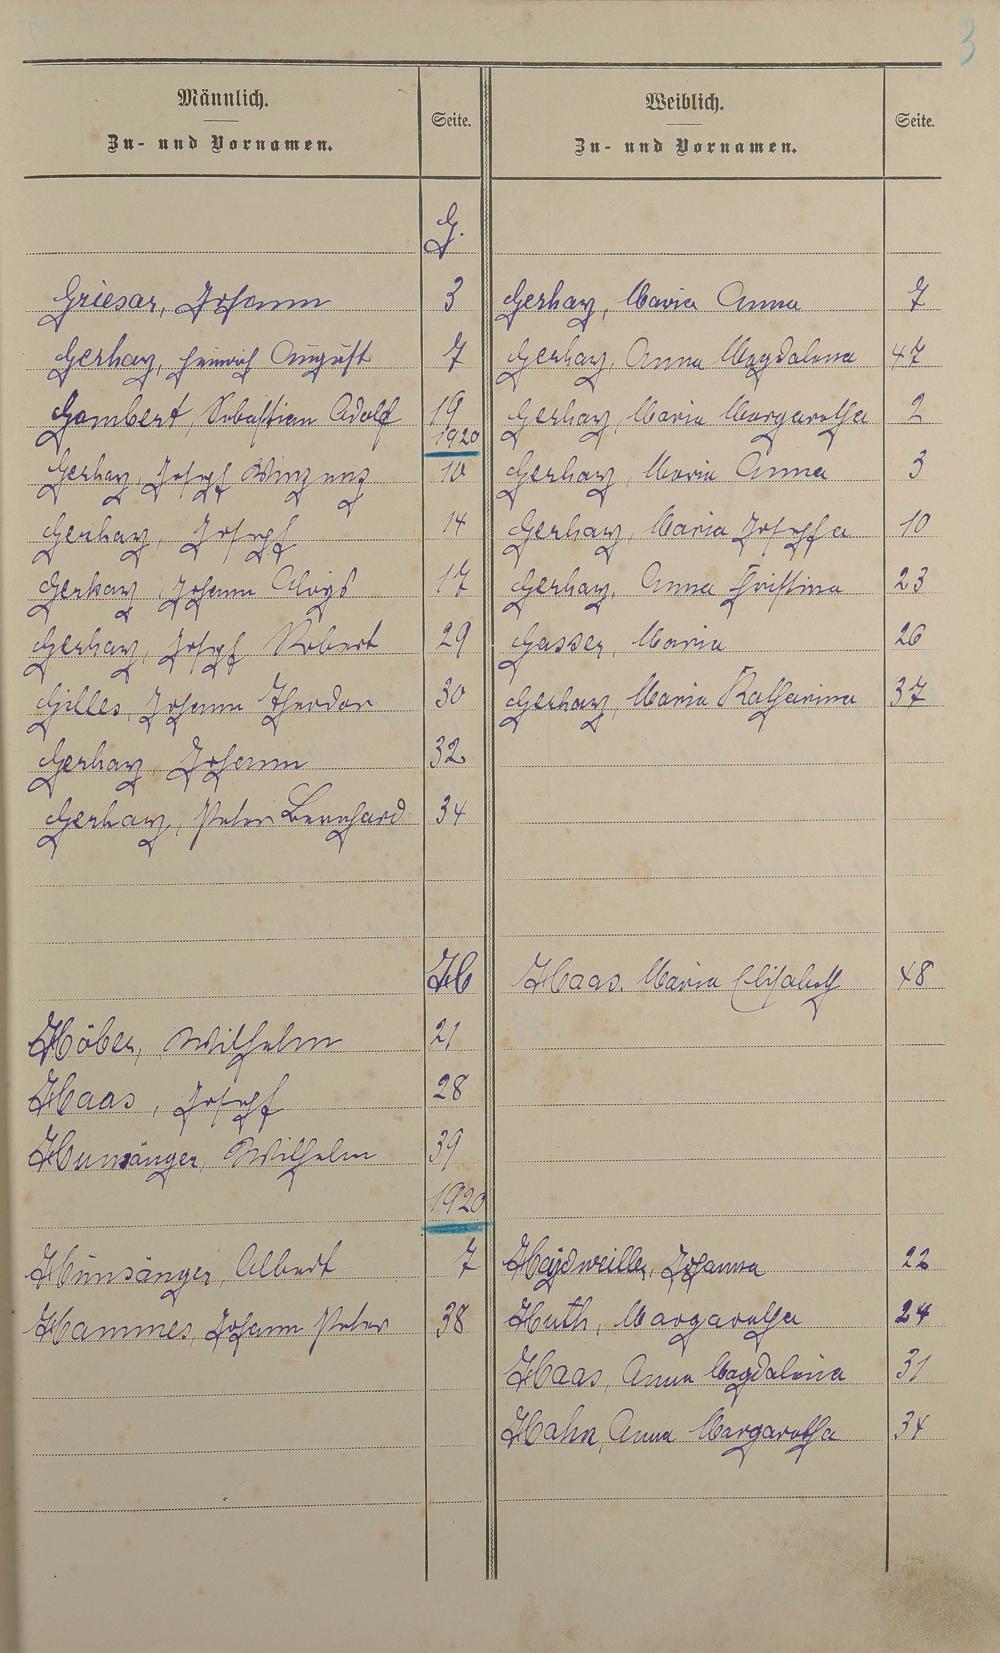 3
Männlich.
Zu- und Vornamen.
Seite.
Weiblich.
Zu- und Vornamen.
Seite.
G.
Griesar, Johann 3 Gerharz, Maria Anna 7
Gerharz, Heinrich August 7 Gerharz, Anna Magdalena 47
Gombert, Sebastian Adolf 19 Gerharz, Maria Margaretha 2
1920
Gerharz, Joseph Winzenz 10 Gerharz, Maria Anna 3
Gerharz, Joseph 14 Gerharz, Maria Josepha 10
Gerharz, Johann Aloys 17 Gerharz, Anna Christina 23
Gerharz, Joseph Robert 29 Gasser, Maria 26
Gilles, Johann Theodor 30 Gerharz, Maria Katharina 37
Gerharz, Johann 32
Gerharz, Peter Bernhard 34
H Haas. Maria Elisabeth 48
Höber, Wilhelm 21
Haas, Joseph 28
Hunsänger, Wilhelm 39
1920
Hunsänger, Albert 7 Haydweiller, Johanna 22
Hammes, Johann Peter 38 Huth, Margaretha 24
Haas, Anna Magdalena 31
Hahn, Anna Margaretha 34